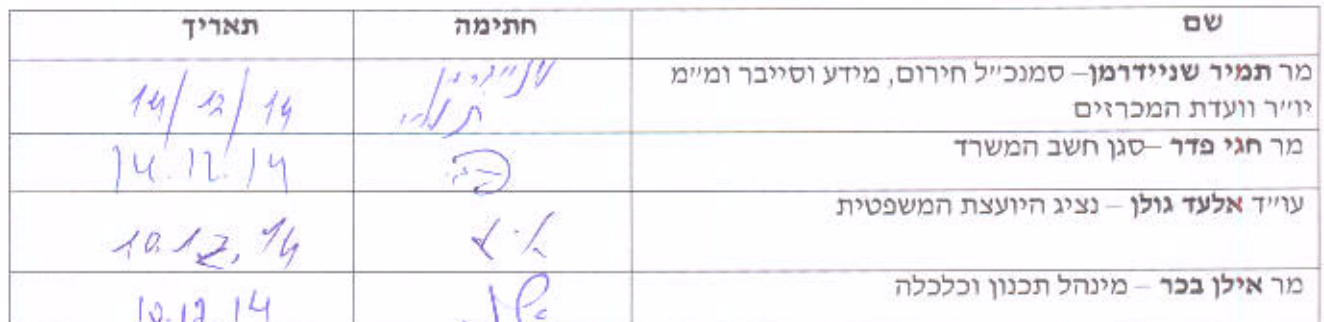 שם חתימה תאריך
מר תמיר שניידרמן– סמנכ״ל חירום, מידע וסייבר ומ״מ יו״ר וועדת המכרזים שניידרמן תמיר 14/12/14
מר חגי פדר –סגן חשב המשרד 14.12.14
עו״ד אלעד גולן – נציג היועצת המשפטית 10.12.14
מר אילן בכר – מינהל תכנון וכלכלה 10.12.14